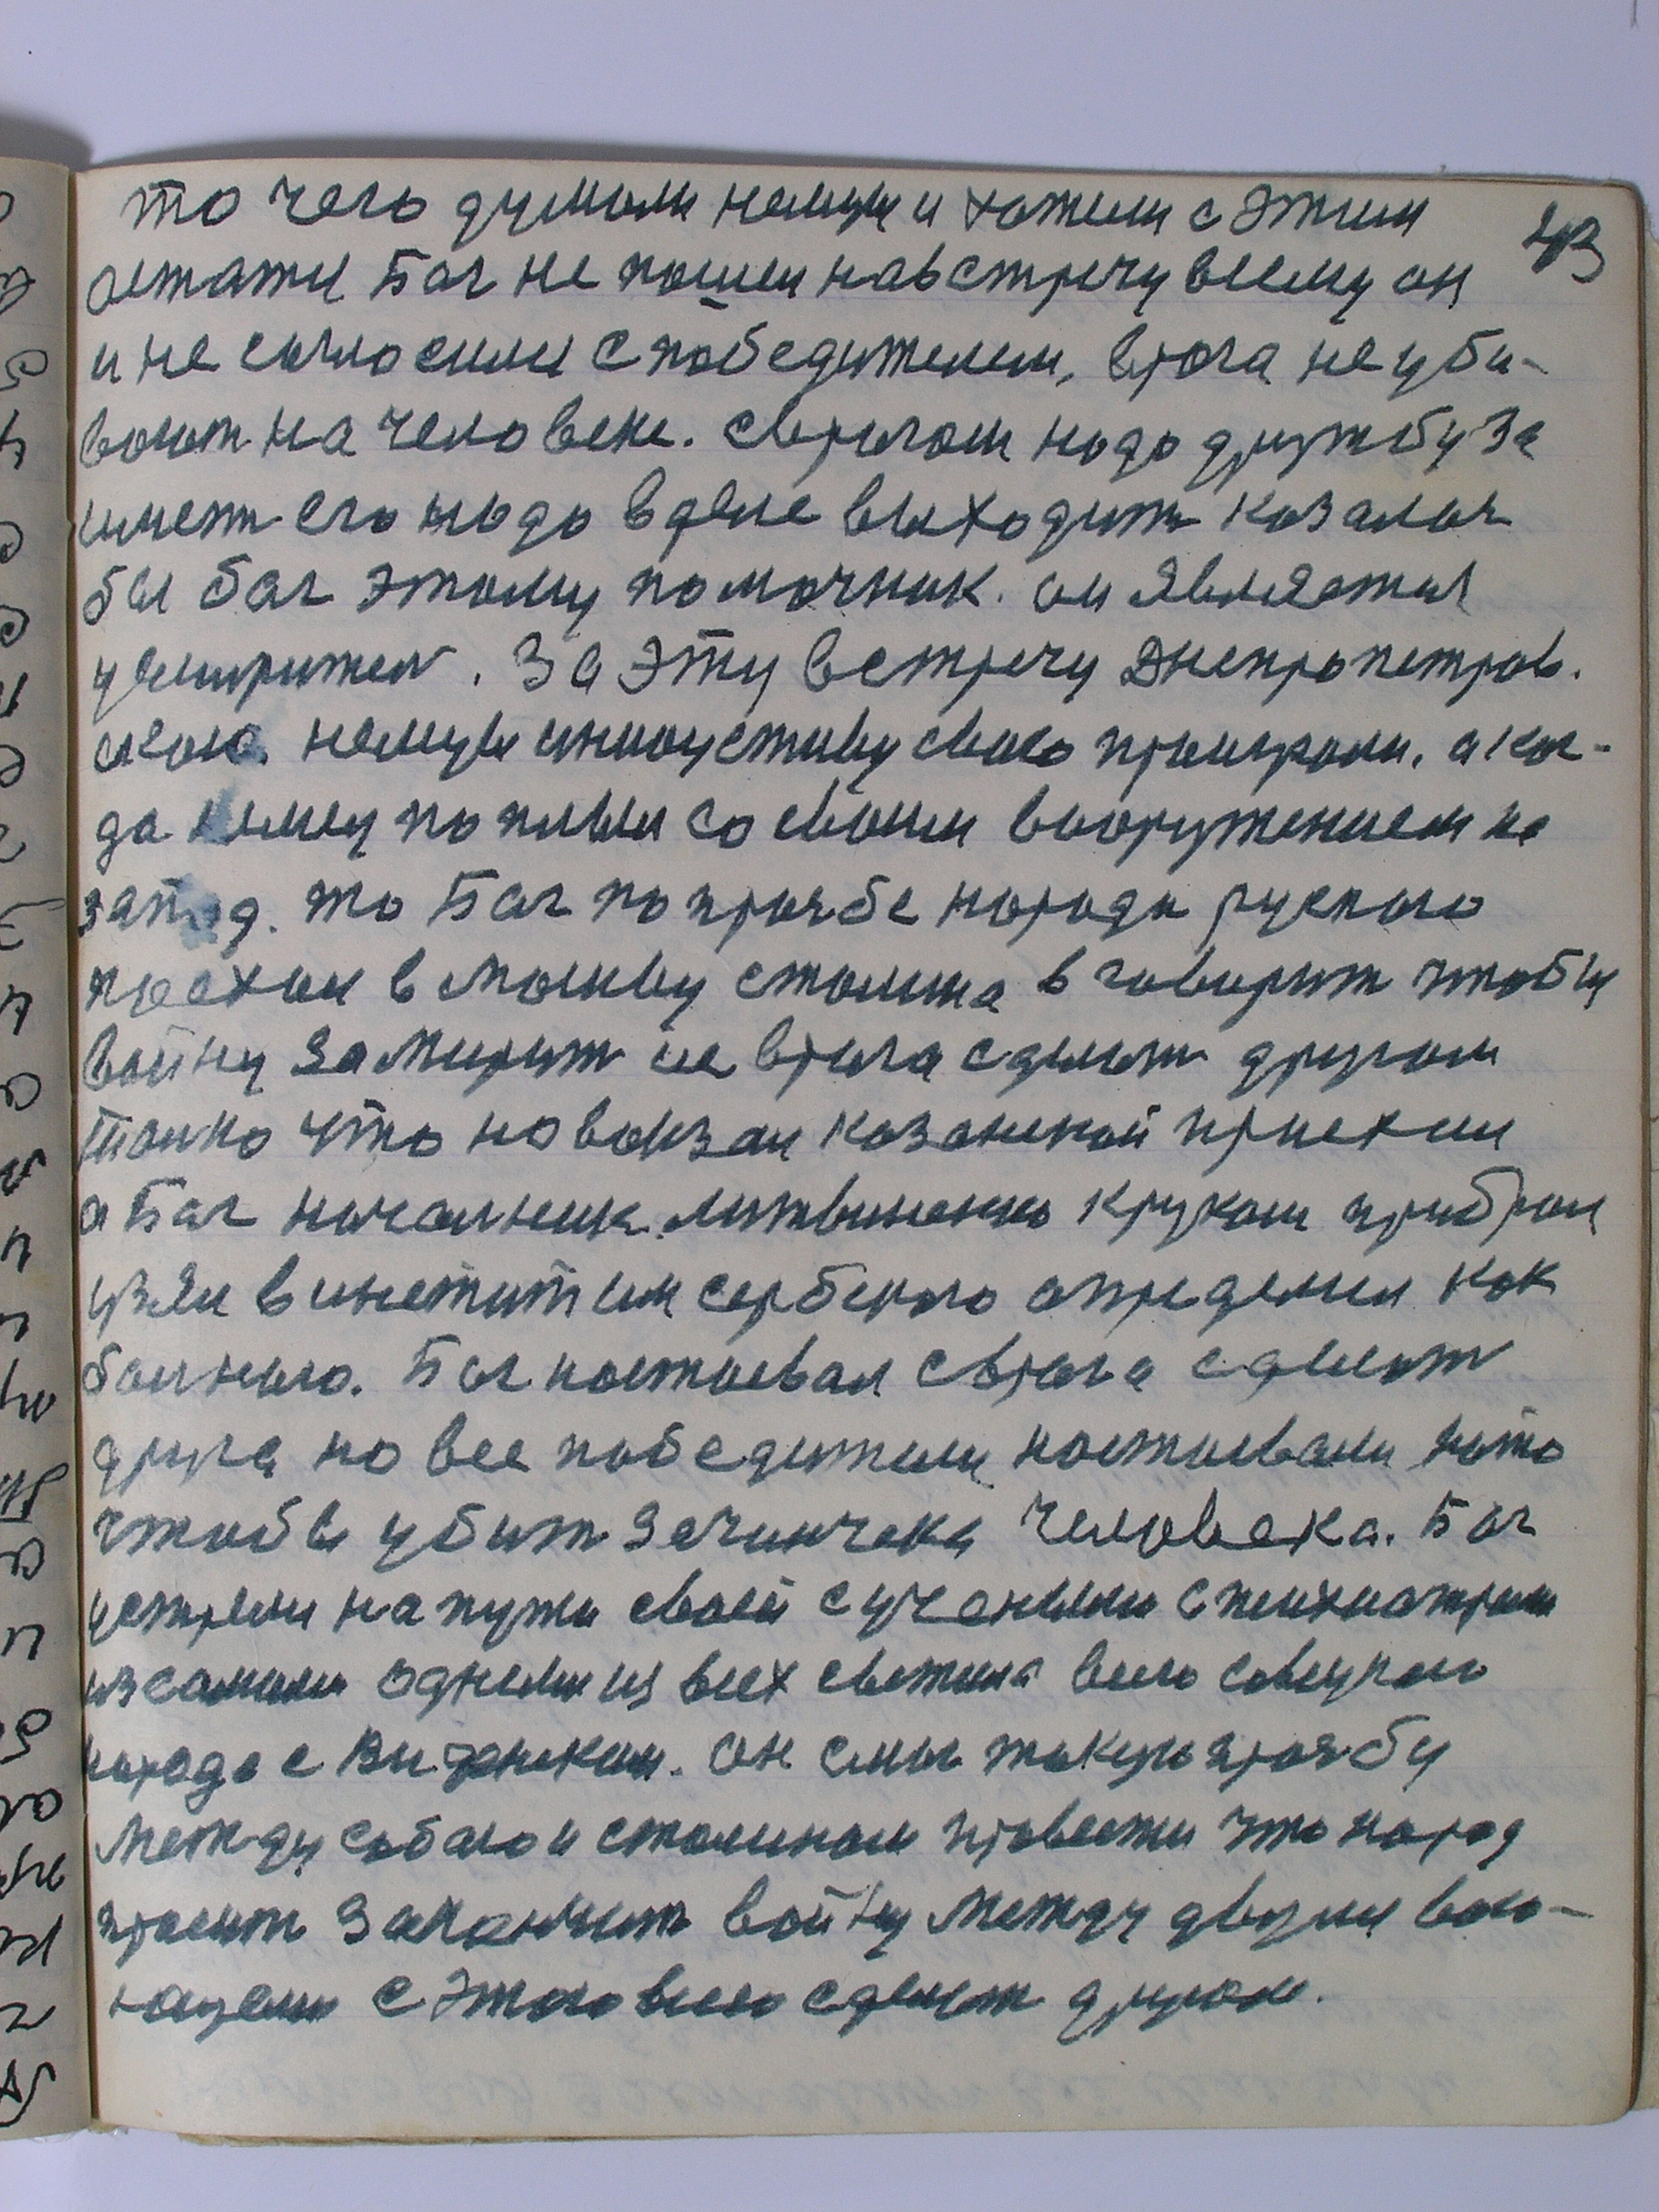 то чего думали немцы и хотели с этим
остатся Бог не пошел на встречу всему он 43
и не сагласился с победителем, врога не уби-
вают на человеке. Сврогом надо дружбу за
имет его надо в деле выходить казалас
бы бог этому помочник. он является
умиритель. За эту встречу днепропетров.
скою немцы инициативу свою проиграли. а ког-
да немцу попили со своим вооружением на
запад. то Бог по прозьбе народа руского
поехал в Москву сталина в говорит чтобы
войну замирит из врага сделат другом
только что на вокзал казанской приехал
а Бог началник литвиненко крукам прибрал
узял в инститит им сербского определил как
болного. Бог настоевал с врага сделат
друга но все победители настоевали на то
чтобы убит зачинчека человека. Бог
устрели на пути своей с учеными с психиатром
из самыми одними из всех светила всего совецкого
народа с Введенским. он смог такую прозьбу
между собою и сталиным провести что народ
просит закончит войну между двумя вою-
ющими с этого всего сделат другом.